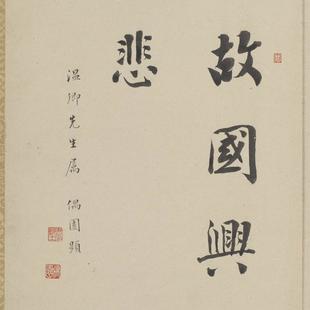 故國興
悲
温卿先生屬 偶園題